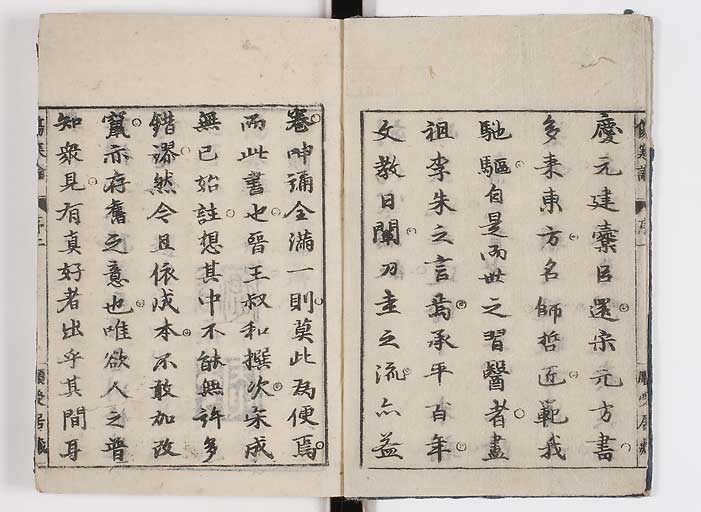 慶元建櫜臣運宗元方書
多来東方名師哲匠範我
馳驅自是而世之習醫者盡
祖李朱之言焉承平百年
文教日闡刀圭之流亦益
卷帙彌全滿一則莫此為便焉
而此書也晉王叔和撰次宋成
無已始註想其中不能無許多
錯謬然今且依成本不敢加改
竄亦存舊之意也唯欲人之普
知衆見有真好者出乎其間耳
傷寒論
序一
傷寒論
序二